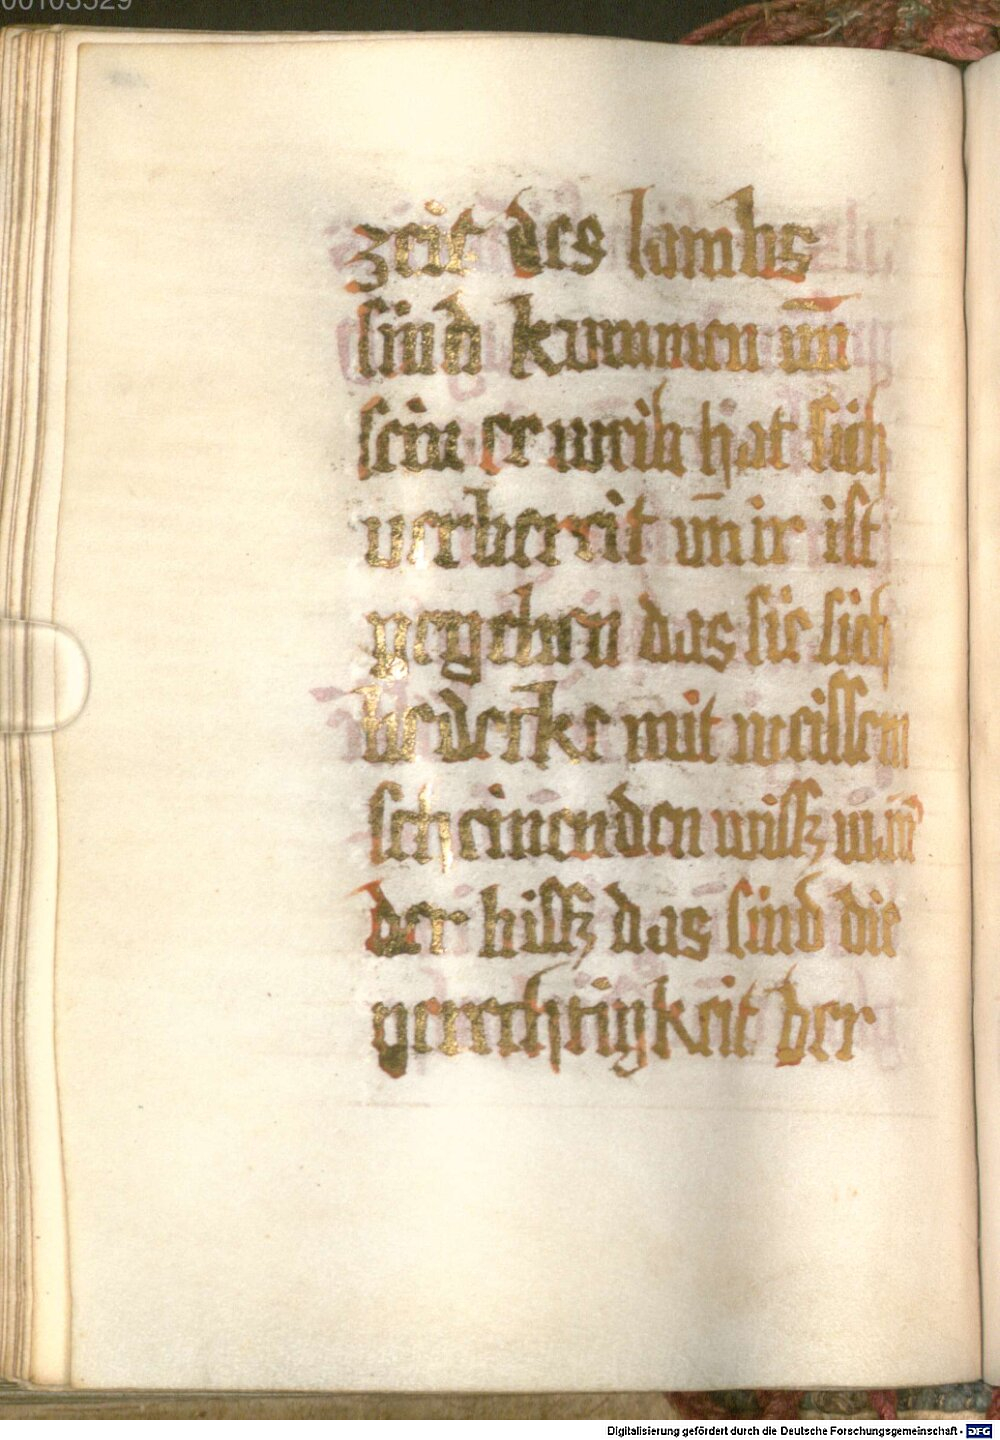 00103529
zeit des lambs
sind kummen vn̄
sein er weib hat sich
verbereit vn̄ ir ist
gegeben das sie sich
bedecke mit weissem
scheinenden wissz wān
der bissz das sind die
gerechtigkeit der
Digitalisierung gefördert durch die Deutsche Forschungsgemeinschaft - DFG